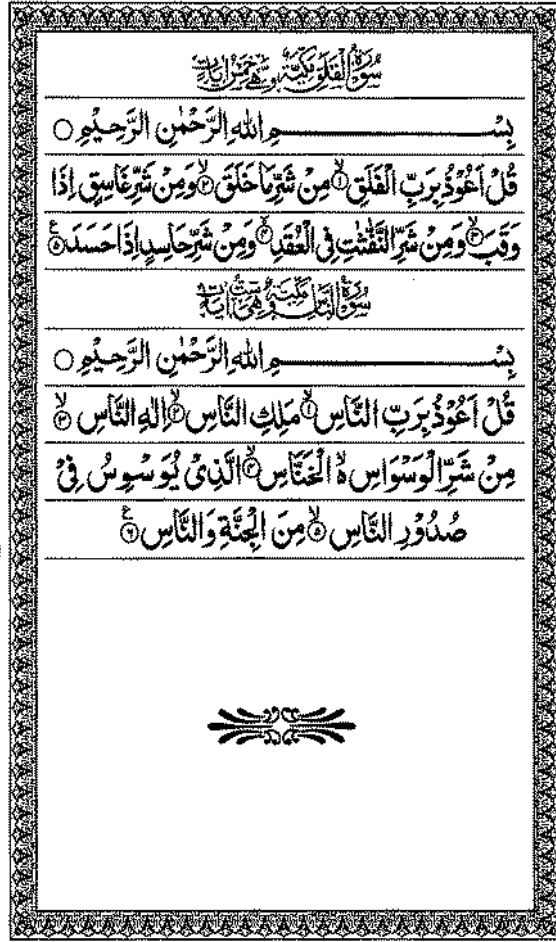 سُوْرَةُ الْفَلَقِ مَكِّيَّةٌ وَّهِيَ خَمْسُ اٰيَاتٍ
بِسْــــــــــــــــمِ اللهِ الرَّحْمٰنِ الرَّحِيْمِ ○
قُلْ اَعُوْذُ بِرَبِّ الْفَلَقِ ۙ﴿۱﴾ مِنْ شَرِّ مَا خَلَقَ ۙ﴿۲﴾ وَمِنْ شَرِّ غَاسِقٍ اِذَا
وَقَبَ ۙ﴿۳﴾ وَمِنْ شَرِّ النَّفّٰثٰتِ فِی الْعُقَدِ ۙ﴿۴﴾ وَمِنْ شَرِّ حَاسِدٍ اِذَا حَسَدَ ﴿۵﴾ ع
سُوْرَةُ النَّاسِ مَكِّيَّةٌ وَّهِيَ سِتُّ اٰيَاتٍ
بِسْــــــــــــــــمِ اللهِ الرَّحْمٰنِ الرَّحِيْمِ ○
قُلْ اَعُوْذُ بِرَبِّ النَّاسِ ۙ﴿۱﴾ مَلِكِ النَّاسِ ۙ﴿۲﴾ اِلٰهِ النَّاسِ ۙ﴿۳﴾
مِنْ شَرِّ الْوَسْوَاسِ ۙ۬ الْخَنَّاسِ ۙ﴿۴﴾ الَّذِیْ يُوَسْوِسُ فِیْ
صُدُوْرِ النَّاسِ ۙ﴿۵﴾ مِنَ الْجِنَّةِ وَالنَّاسِ ﴿۶﴾ ع